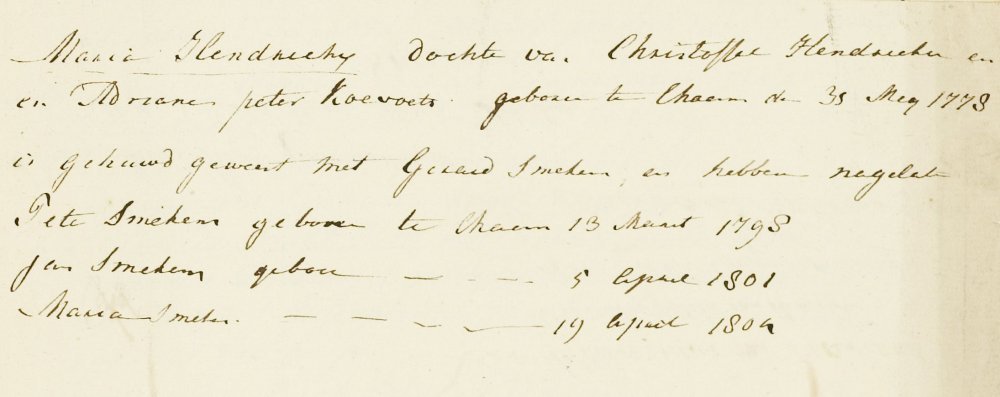 Maria Hendrickx dochte van Christoffel Hendrickx en
en Adriana peter Koevoets. geboren te Chaam den 31 Mey 1778
is gehuwd geweest met Gerard Smekens, en hebben nagelate
Pete Smekens geboren te Chaam 13 Maart 1798
Jan Smekens geboren — - - 5 April 1801
Maria Smeken. — — - — 19 April 1804